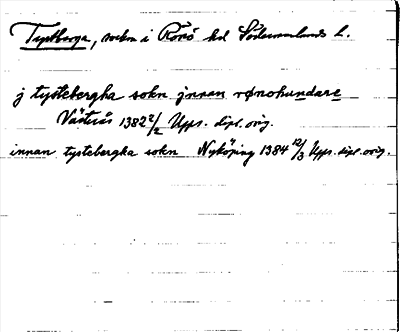 Tystberga, socken i Rönö hd Södermanlands l.
j tystebergha sokn jnnan rønohundare
Västerås 1382 2/2 Upps. dipl. orig.
innan tystebergha sokn Nyköping 1384 12/3 Upps. dipl. orig.